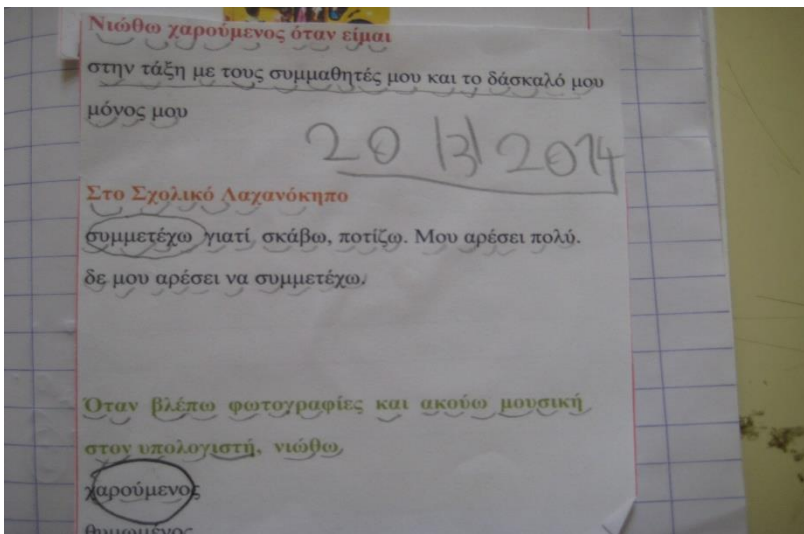 Νιώθω χαρούμενος όταν είμαι
στην τάξη με τους συμμαθητές μου και το δάσκαλό μου
μόνος μου
20/3/2014
Στο Σχολικό Λαχανόκηπο
συμμετέχω γιατί σκάβω, ποτίζω. Μου αρέσει πολύ.
δε μου αρέσει να συμμετέχω.
Όταν βλέπω φωτογραφίες και ακούω μουσική
στον υπολογιστή, νιώθω
χαρούμενος
θυμωμένος